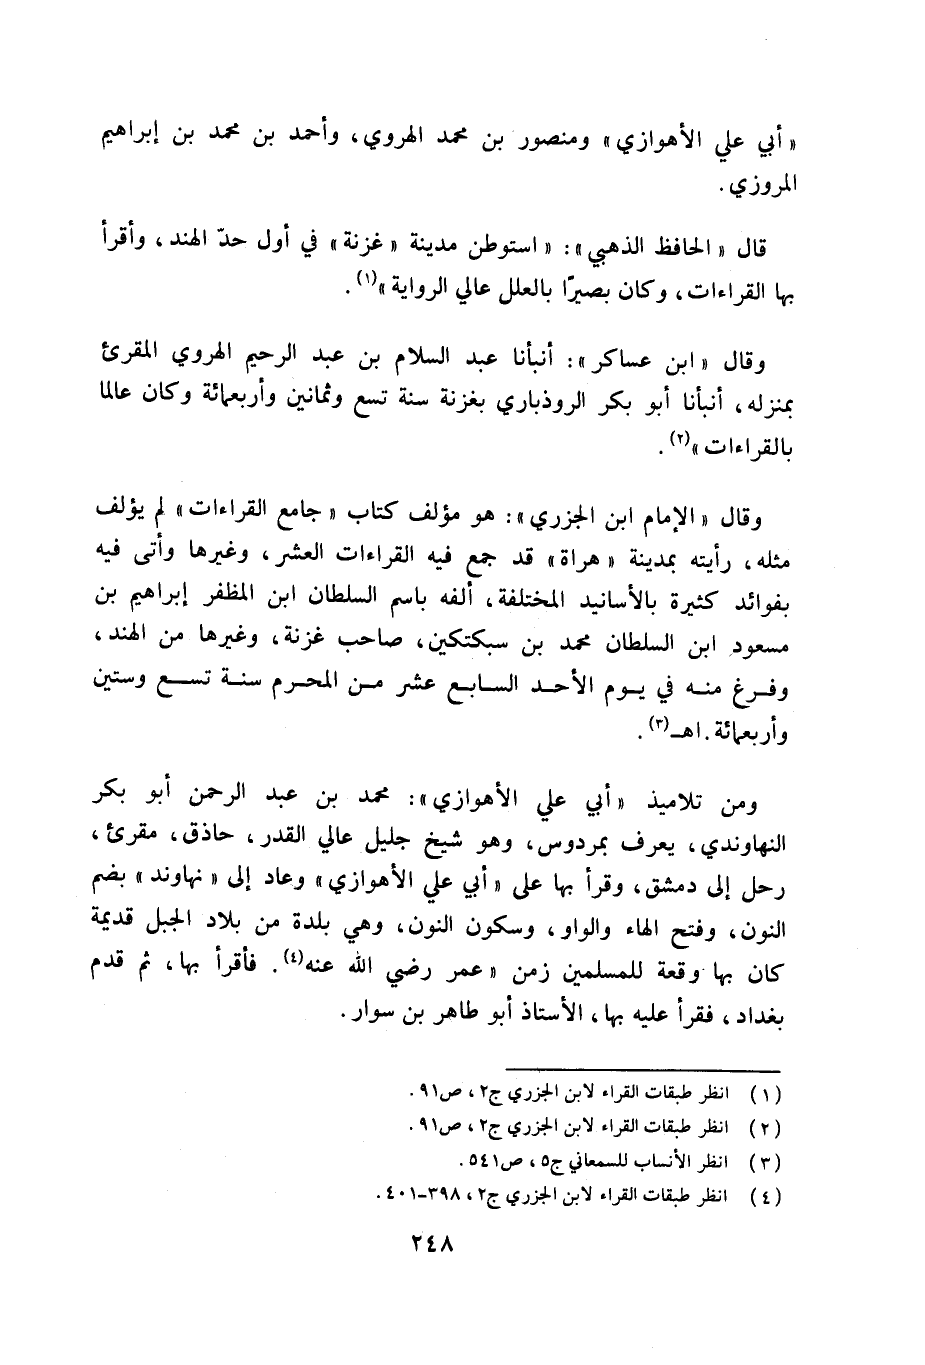 « أبي علي الأهوازي » ومنصور بن محمد الهروي، وأحمد بن محمد بن إبراهيم
المروزي.
قال « الحافظ الذهبي »: « استوطن مدينة « غزنة » في أول حدّ الهند، وأقرأ
بها القراءات، وكان بصيرًا بالعلل عالي الرواية »(١).
وقال « ابن عساكر »: أنبأنا عبد السلام بن عبد الرحيم الهروي المقرئ
بمنزله، أنبأنا أبو بكر الروذباري بغزنة سنة تسع وثمانين وأربعمائة وكان عالما
بالقراءات »(٢).
وقال « الإمام ابن الجزري »: هو مؤلف كتاب « جامع القراءات » لم يؤلف
مثله، رأيته بمدينة « هراة » قد جمع فيه القراءات العشر، وغيرها وأتى فيه
بفوائد كثيرة بالأسانيد المختلفة، ألفه باسم السلطان ابن المظفر إبراهيم بن
مسعود ابن السلطان محمد بن سبكتكين، صاحب غزنة، وغيرها من الهند،
وفرغ منه في يوم الأحد السابع عشر من المحرم سنة تسع وستين
وأربعمائة. اهـ(٣).
ومن تلاميذ « أبي علي الأهوازي »: محمد بن عبد الرحمن أبو بكر
النهاوندي، يعرف بمردوس، وهو شيخ جليل عالي القدر، حاذق، مقرئ،
رحل إلى دمشق، وقرأ بها على « أبي علي الأهوازي » وعاد إلى « نهاوند » بضم
النون، وفتح الهاء والواو، وسكون النون، وهي بلدة من بلاد الجبل قديمة
كان بها وقعة للمسلمين زمن « عمر رضي الله عنه(٤). فأقرأ بها، ثم قدم
بغداد، فقرأ عليه بها، الأستاذ أبو طاهر بن سوار.
(١) انظر طبقات القراء لابن الجزري ج٢، ص٩١.
(٢) انظر طبقات القراء لابن الجزري ج٢، ص٩١.
(٣) انظر الأنساب للسمعاني ج٥، ص٥٤١.
(٤) انظر طبقات القراء لابن الجزري ج٢، ٣٩٨-٤٠١.
٢٤٨